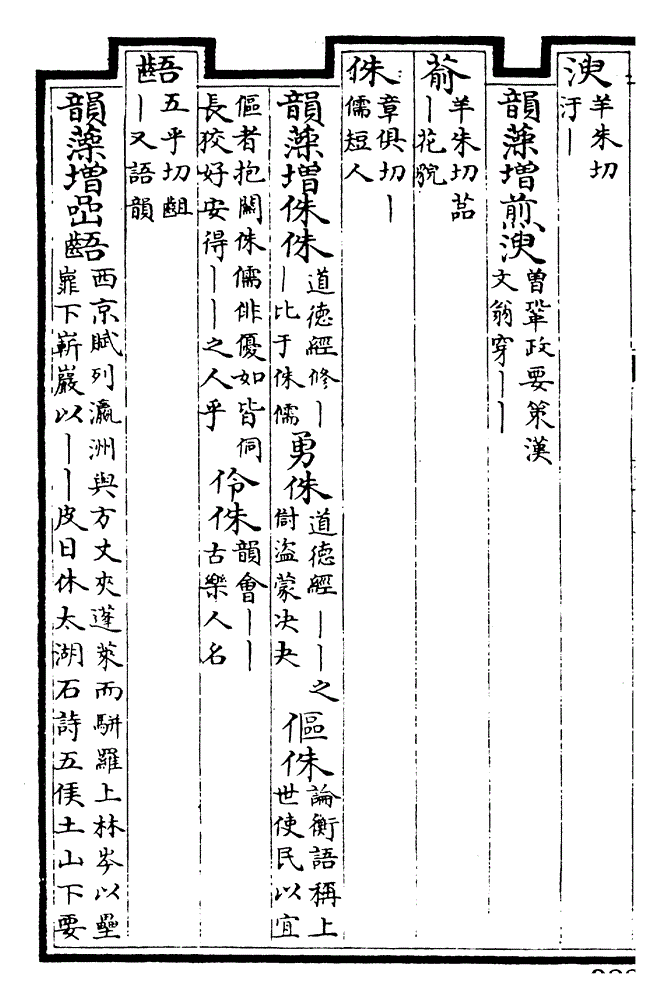 㳛羊朱切
汙丨
韻藻増煎㳛曽鞏政要策漢
文翁穿丨丨
蕍羊朱切蕌
丨花貌
侏章俱切丨
儒短人
韻藻増侏侏道德經修丨
丨比于侏儒
勇侏道德經丨丨之
尌盜蒙决夬
傴侏論衡語稱上
世使民以宜
傴者抱闗侏儒俳優如皆侗
長狡好安得丨丨之人乎
伶侏韻會丨丨
古樂人名
齬五乎切齟
丨又語韻
韻藻増㗊齬西京賦列瀛洲與方丈夾蓬萊而駢羅上林岑以壘
嶵下嶄巖以丨丨皮日休太湖石詩五侯土山下要